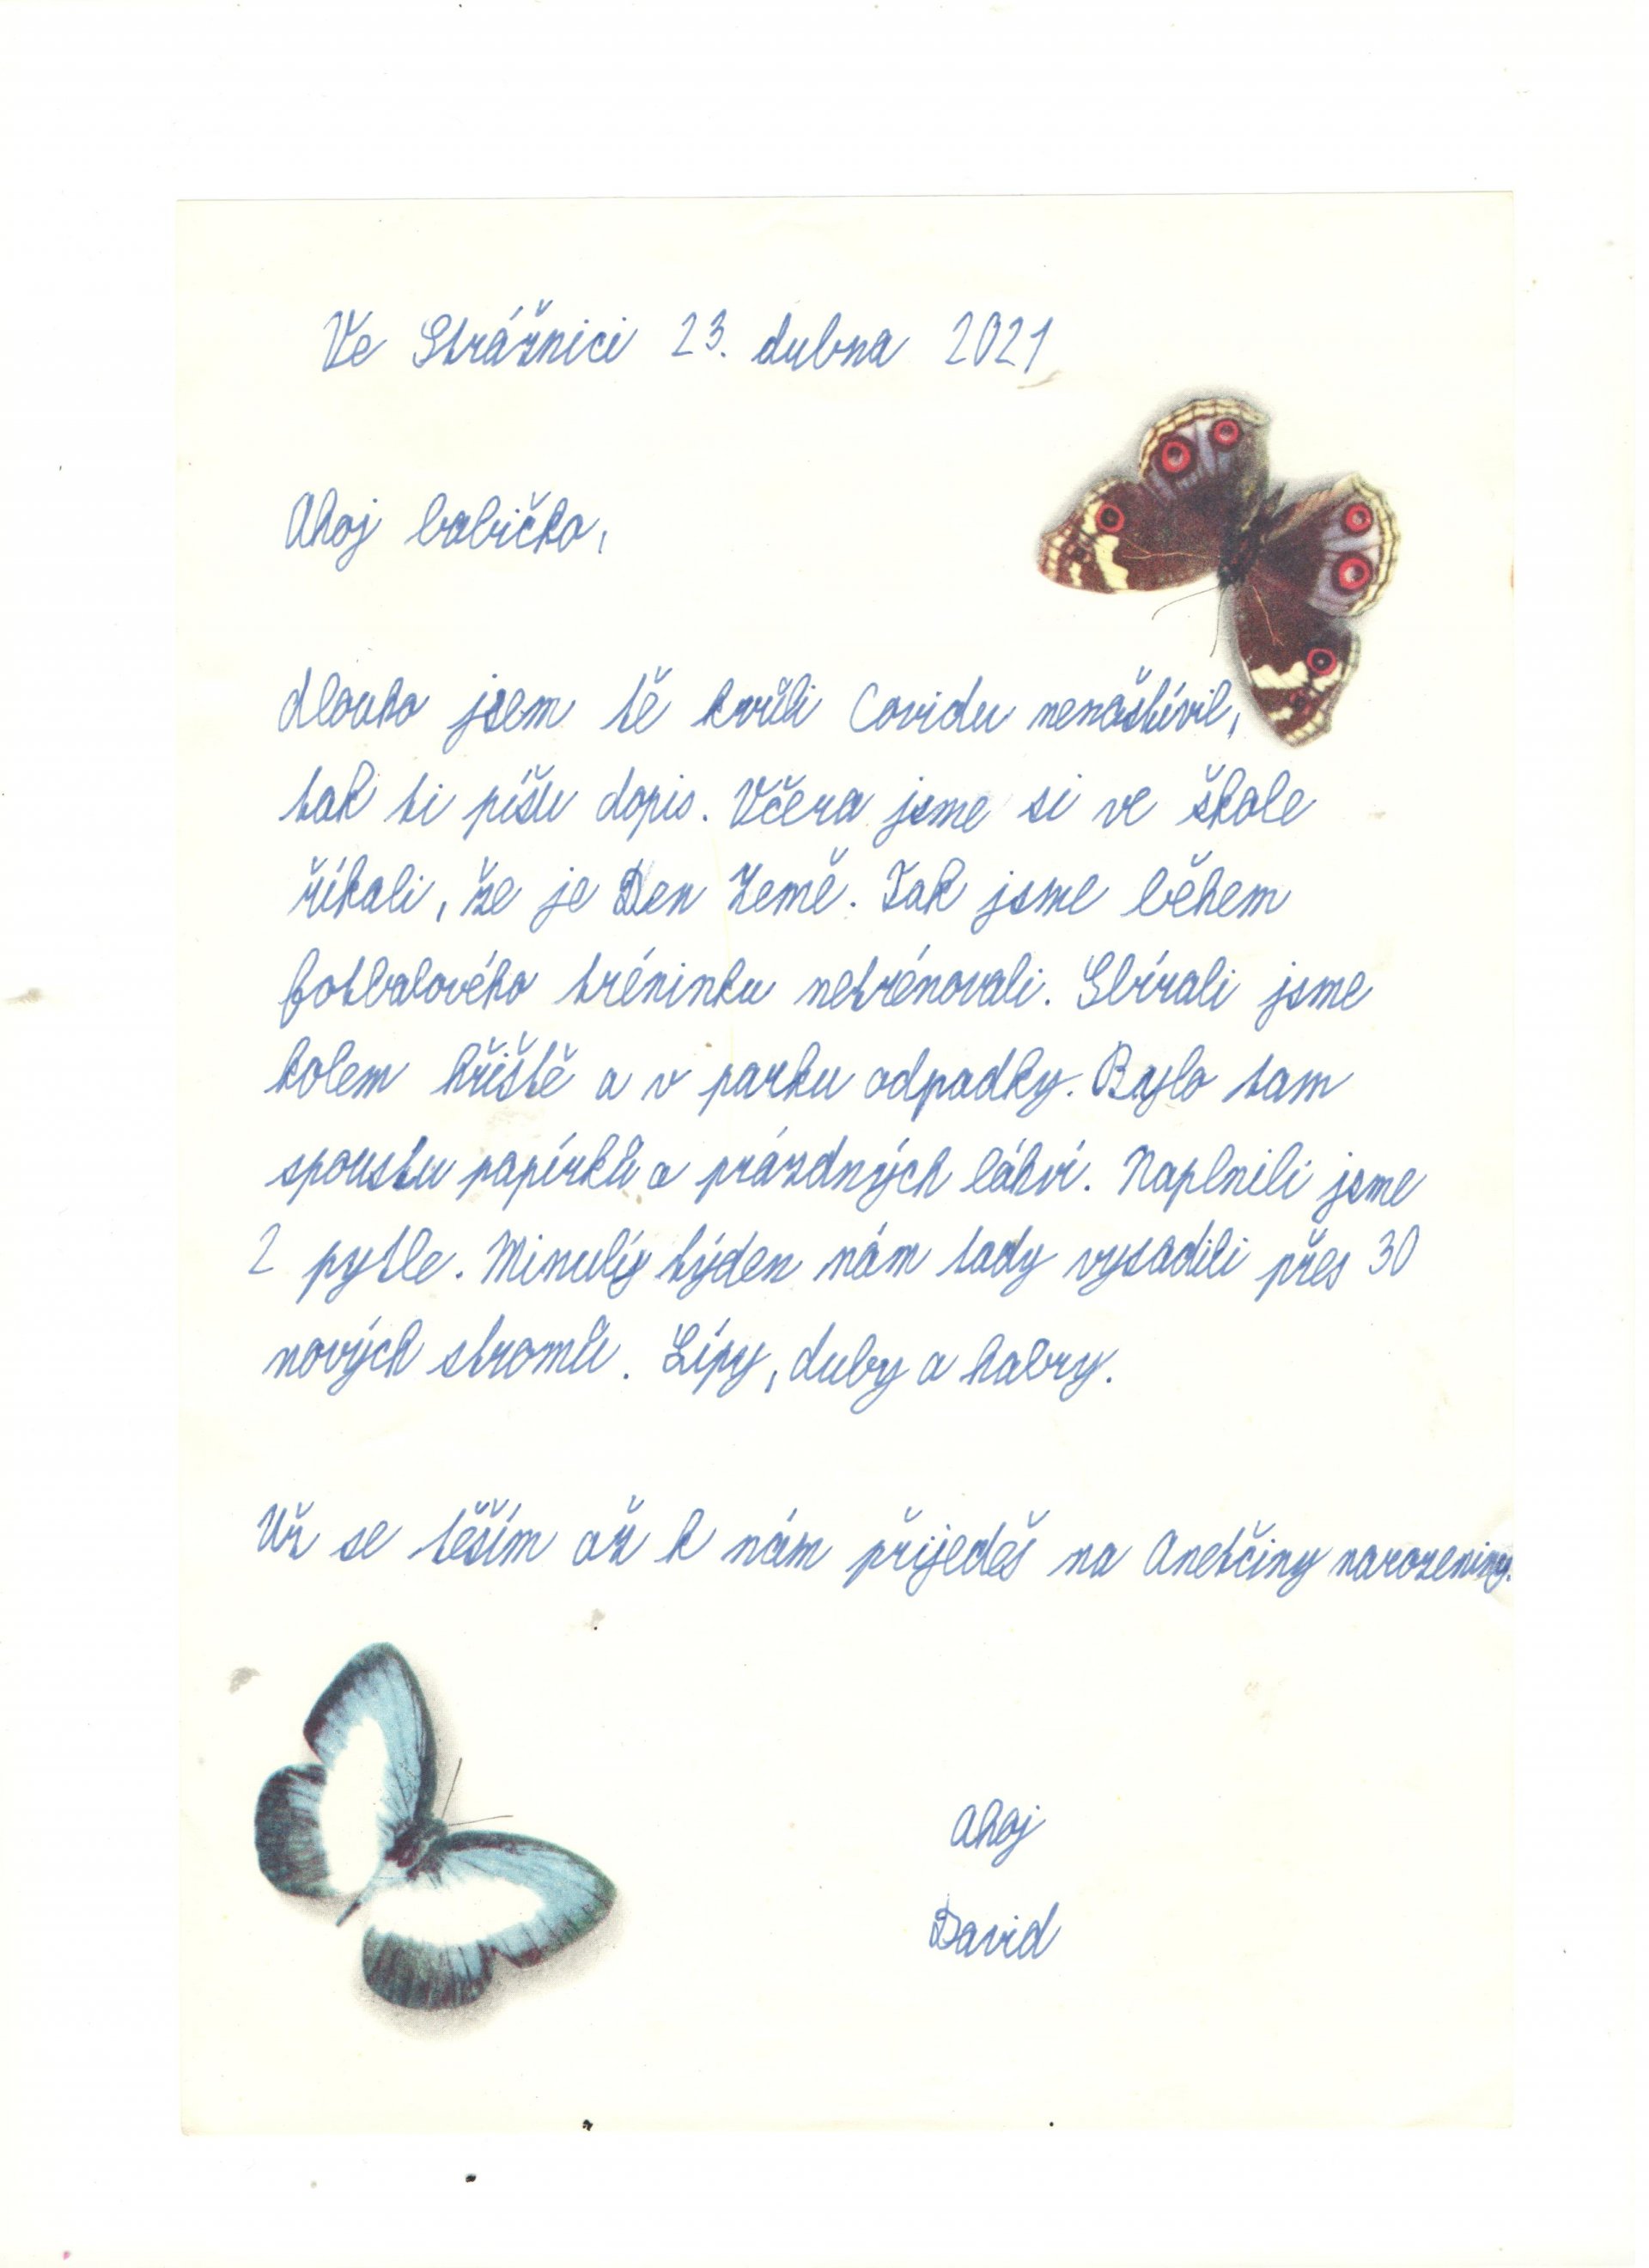 Ve Strážnici 23. dubna 2021
Ahoj babičko,
dlouho jsem tě kvůli Covidu nenavštívil,
tak ti píšu dopis. Včera jsme si ve škole
říkali, že je Den Země. Tak jsme během
fotbalového tréninku netrénovali. Sbírali jsme
kolem hřiště a v parku odpadky. Bylo tam
spoustu papírků a prázdných láhví. Naplnili jsme
2 pytle. Minulý týden nám tady vysadili přes 30
nových stromů. Lípy, duby a habry.
Už se těším až k nám přijedeš na Anetčiny narozeniny.
Ahoj
David